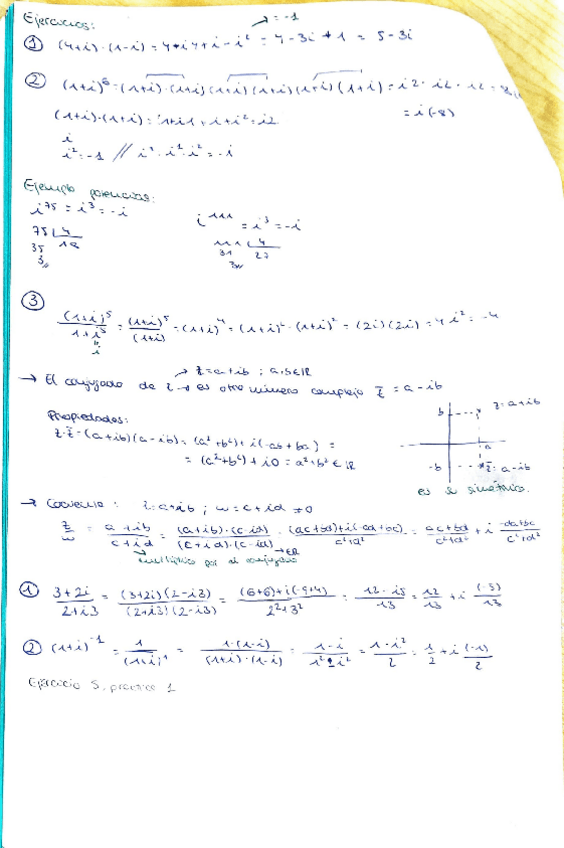 Ejercicios:
= -1
① (4+i)·(1-i) = 4-i4+i-i² = 4-3i+1 = 5-3i
② (1+i)⁶ = (1+i)·(1+i)(1+i)(1+i)(1+i)(1+i) = i2·i2·i2 =
(1+i)·(1+i) = 1+i1+i+i² = i2
= i(-8)
i
i² = -1 // i³ = i¹·i² = -i
Ejemplo potencias:
i⁷⁵ = i³ = -i
i¹¹¹ = i³ = -i
75 | 4
111 | 4
35 18
31 27
3
3
③ (1+i)⁵/1+i⁵ = (1+i)⁵/(1+i) = (1+i)⁴ = (1+i)²·(1+i)² = (2i)(2i) = 4i² = -4
i
z = a+ib ; a,b∈ℝ
→ El conjugado de z → es otro número complejo z̄ = a-ib
b z=a+ib
Propiedades:
z·z̄ = (a+ib)(a-ib) = (a²+b²)+i(-ab+ba) =
a
= (a²+b²)+i0 = a²+b² ∈ ℝ
-b z̄=a-ib
es el simétrico.
→ Cociente: z=a+ib ; w=c+id ≠0
z/w = a+ib/c+id = (a+ib)·(c-id)/(c+id)·(c-id) = (ac+bd)+i(-ad+bc)/c²+d² = ac+bd/c²+d² + i -da+bc/c²+d²
→ multiplico por el conjugado →∈ℝ
① 3+2i/2+i3 = (3+2i)(2-i3)/(2+i3)(2-i3) = (6+6)+i(-9+4)/2²+3² = 12-i5/13 = 12/13 + i (-5)/13
② (1+i)⁻¹ = 1/(1+i)¹ = 1·(1-i)/(1+i)·(1-i) = 1-i/1²+i² = 1-i²/2 = 1/2 + i (-1)/2
Ejercicio 5, práctica 1